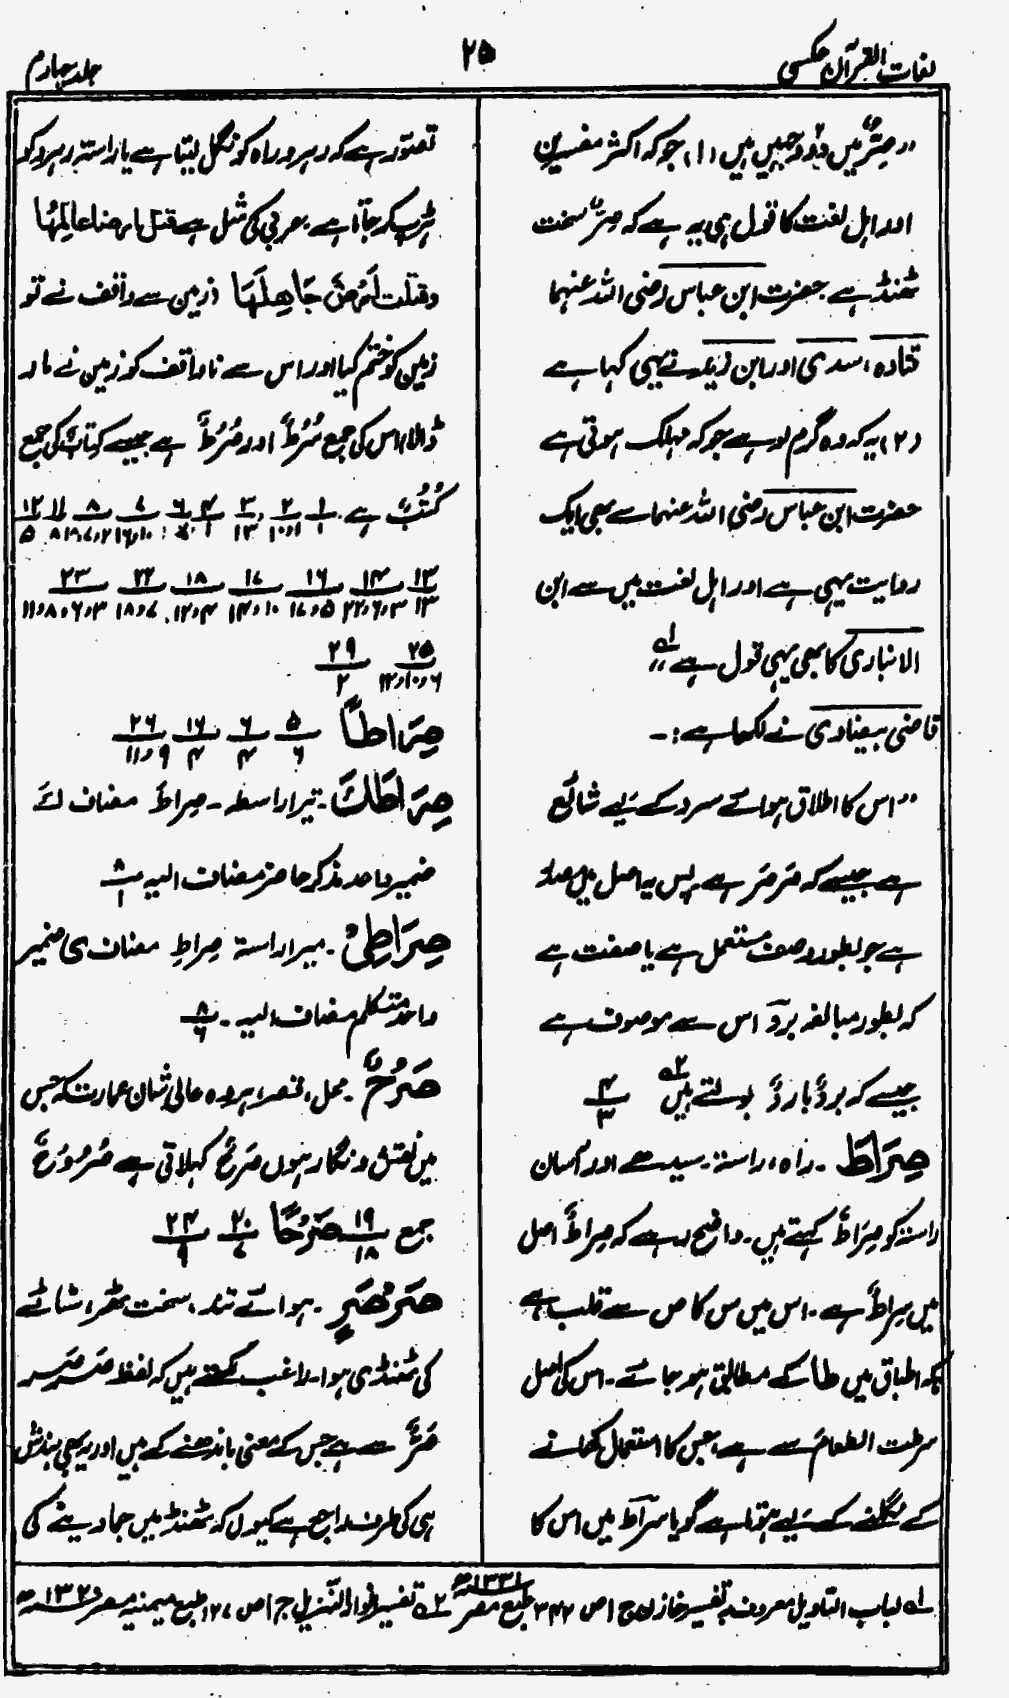 لغات القرآن عکسی
۲۵
جلد چہارم
”صِرٌّ میں دو وجہیں ہیں (۱) جو کہ اکثر مفسرین
اور اہل لغت کا قول ہی یہ ہے کہ صِرٌّ سخت
ٹھنڈ ہے حضرت ابن عباس رضی اللہ عنہما
قتادہ، سدی اور ابن زید نے یہی کہا ہے
(۲) یہ کہ وہ گرم لو ہے جو کہ مہلک ہوتی ہے
حضرت ابن عباس رضی اللہ عنہما سے بھی ایک
روایت یہی ہے اور اہل لغت میں سے ابن
الانباری کا بھی یہی قول ہے“ لہ
قاضی بیضاوی نے لکھا ہے :۔
”اس کا اطلاق ہوائے سرد کے لیے شائع
ہے جیسے کہ صَرصَر ہے پس یہ اصل میں مصدر
ہے جو بطور وصف مستعمل ہے یا صفت ہے
کہ بطور مبالغہ بردٌ اس سے موصوف ہے
جیسے کہ بردٌ باردٌ بولتے ہیں ۲ہ ۴/۳
صِرَاطٌ ۔ راہ، راستہ۔ سیدھے اور آسان
راستہ کو صِرَاطٌ کہتے ہیں۔ واضح رہے کہ صِراطٌ اصل
میں سِراطٌ ہے ۔ اس میں س کا ص سے قلب ہے
کہ اطباق میں طا کے مطابق ہو جائے۔ اس کی اصل
سرطت الطعامَ سے ہے، جس کا استعمال کھانے
کے نگلنے کے لیے ہوتا ہے گویا سِرَاطٌ میں اس کا
تصور ہے کہ رہرو راہ کو نگل لیتا ہے یا راستہ رہرو کو
ہڑپ کر جاتا ہے عربی کی مثل ہے قتل ارضا عالِمُہا
وقتلت اَرضٌ جَاهِلَهَا زمین سے واقف نے تو
زمین کو ختم کیا اور اس سے ناواقف کو زمین نے مار
ڈالا، اس کی جمع سُرُطٌ اور صُرُطٌ ہے جیسے کِتابٌ کی جمع
کُتُبٌ ہے ۔ ۱/۱ ۲/۱و۱۰ ۳/۱۳ ۴/۱ ۶/ ۷/ ۸/ ۱۱/ ۱۲/۵
۱۳/۱۳ ۱۴/۳و۶و۲۲ ۱۶/۵و۱۷ ۱۷/۱۰و۱۴ ۱۸/۴و۱۲ ۲۲/۷و۱۸ ۲۳/۳و۶و۸و۱۱
۲۵/۶و۱۰و۱۲ ۲۹/۲
صِرَاطًا ۵/۶ ۶/۴ ۱۶/۴ ۲۶/۹و۱۱
صِرَاطَكَ ۔ تیرا راستہ ۔ صِراطَ مضاف كَ
ضمیر واحد مذکر حاضر مضاف الیہ ۸/۱
صِرَاطِیْ ۔ میرا راستہ صِراطِ مضاف ی ضمیر
واحد متکلم مضاف الیہ ۔ ۸/۶
صَرْحٌ ۔ محل، قصر، ہر وہ عالی شان عمارت کہ جس
میں نقش و نگار ہوں صَرحٌ کہلاتی ہے صُرُوحٌ
جمع ۱۹/۱۸ صَرْحًا ۲۰/۷ ۲۴/۹
صَرْصَرٍ ۔ ہوائے تند، سخت ٹھر، شائے
کی ٹھنڈی ہوا۔ راغب لکھتے ہیں کہ لفظ صَرصَر
صَرٌّ سے ہے جس کے معنی باندھنے کے ہیں اور یہ بھی بندش
ہی کی طرف راجع ہے کیوں کہ ٹھنڈ میں جما دینے کی
لہ لباب التاویل معروف بہ تفسیر خازن ج ۱ ص ۳۴۲ طبع مصر ۱۳۳۱ھ ۲ہ تفسیر انوار التنزیل ج ۱ ص ۱۲۷ طبع میمنیہ مصر ۱۳۲۰ھ